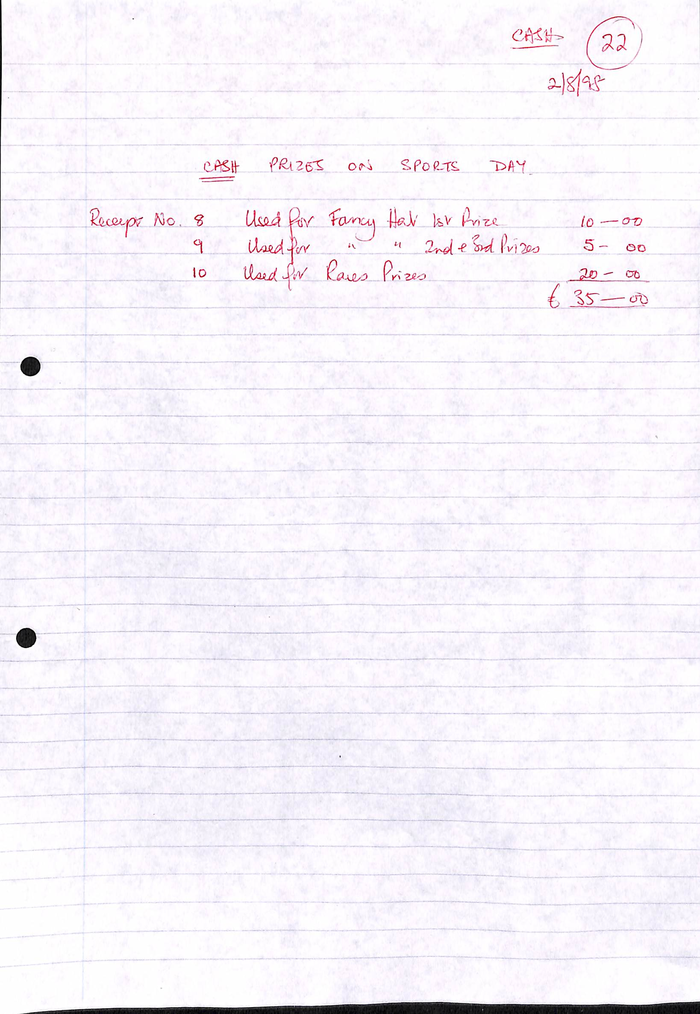 CASH 22
2/8/98
CASH PRIZES ON SPORTS DAY.
Receipt No. 8 Used for Fancy Hat 1st Prize 10-00
9 Used for " " 2nd & 3rd Prizes 5-00
10 Used for Races Prizes 20-00
£ 35-00